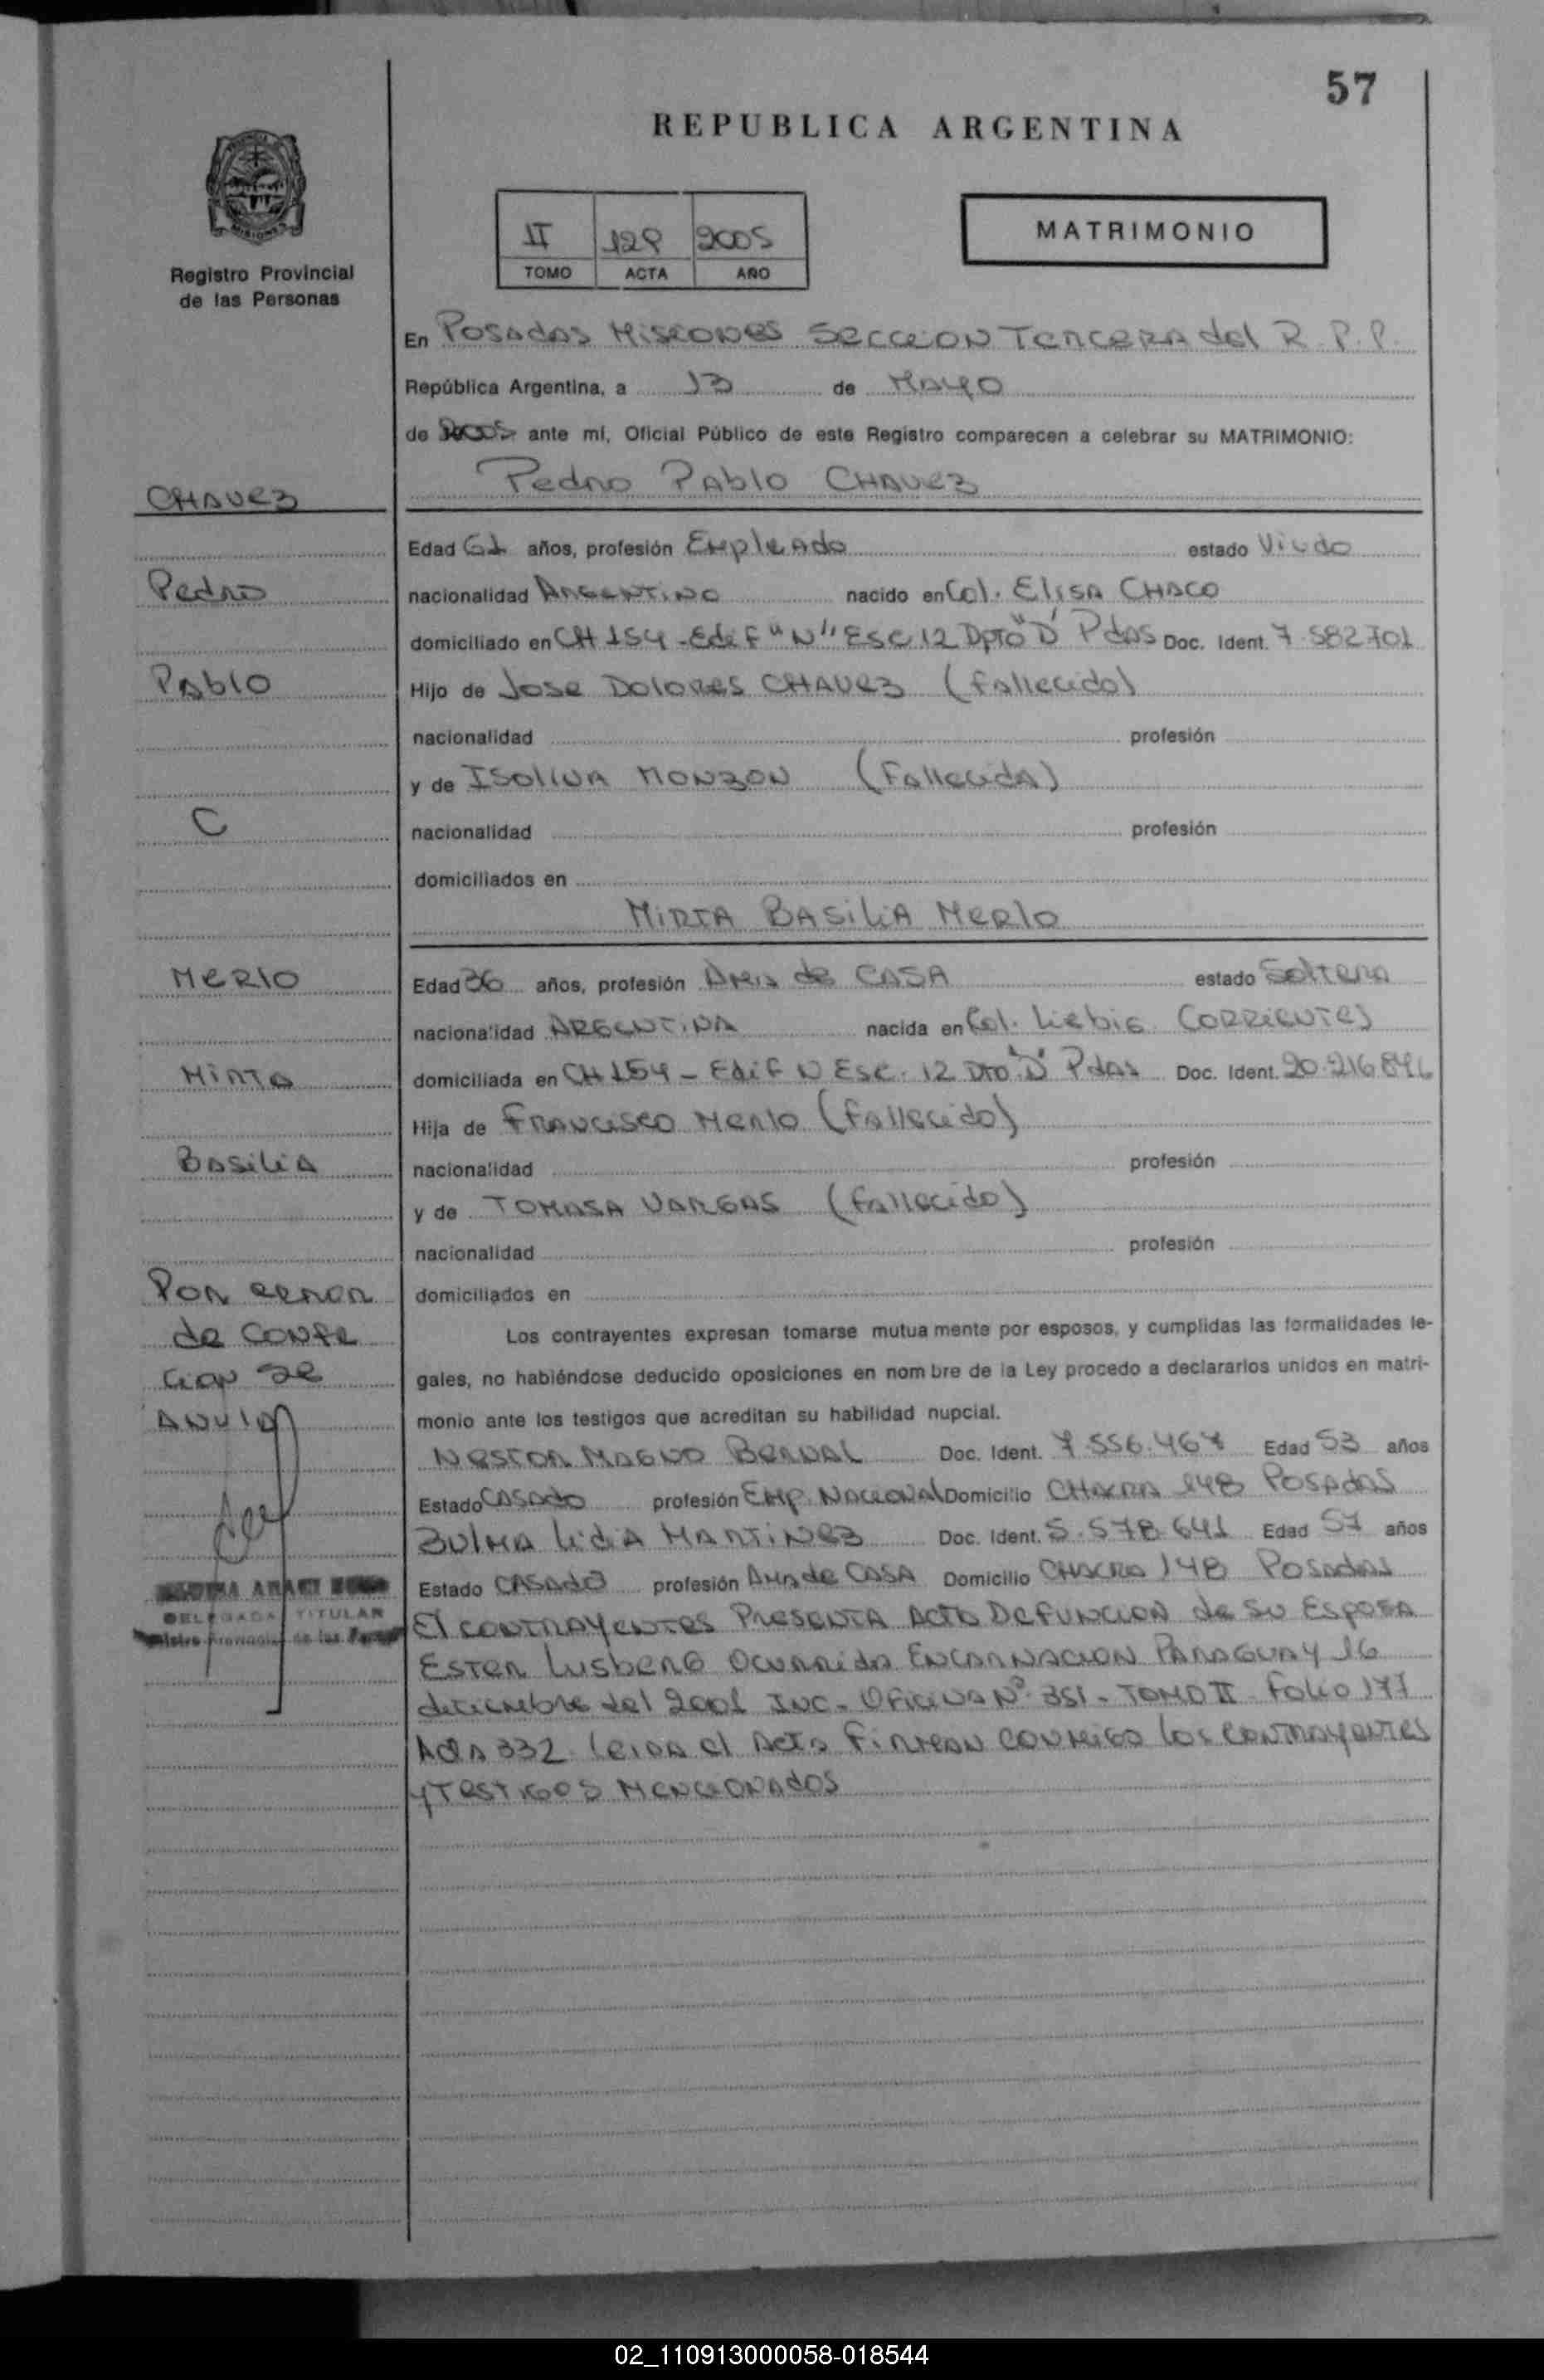 57
REPUBLICA ARGENTINA
MATRIMONIO
II 129 2005
TOMO ACTA AÑO
Registro Provincial
de las Personas
En Posadas Misiones Seccion Tercera del R.P.P.
República Argentina, a 13 de Mayo
de 2005 ante mí, Oficial Público de este Registro comparecen a celebrar su MATRIMONIO:
Pedro Pablo CHAVEZ
CHAVEZ
Edad 61 años, profesión Empleado estado Viudo
Pedro
nacionalidad Argentino nacido en Col. Elisa CHACO
domiciliado en CH 154 - Edif "N" Esc 12 Dpto "D" Pdas Doc. Ident. 7.582.701
Pablo
Hijo de Jose Dolores CHAVEZ (fallecido)
nacionalidad profesión
y de Isolina MONZON (Fallecida)
C
nacionalidad profesión
domiciliados en
Mirta Basilia Merlo
Merlo
Edad 36 años, profesión Ama de CASA estado Soltera
nacionalidad Argentina nacida en Col. Liebig Corrientes
Mirta
domiciliada en CH 154 - Edif N Esc. 12 Dto "D" Pdas Doc. Ident. 20.216.846
Hija de Francisco Merlo (Fallecido)
Basilia
nacionalidad profesión
y de TOMASA VARGAS (fallecido)
nacionalidad profesión
Por error
domiciliados en
de confe
Los contrayentes expresan tomarse mutua mente por esposos, y cumplidas las formalidades le-
cion se
gales, no habiéndose deducido oposiciones en nom bre de la Ley procedo a declararlos unidos en matri-
Anula
monio ante los testigos que acreditan su habilidad nupcial.
Nestor Magno Bernal Doc. Ident. 7.556.467 Edad 53 años
Estado Casado profesión Emp. Nacional Domicilio Chacra 148 Posadas
Zulma Lidia Martinez Doc. Ident. 5.578.641 Edad 57 años
Estado Casado profesión Ama de CASA Domicilio Chacra 148 Posadas
DELEGADA TITULAR
El contrayentes presenta acta Defuncion de su Esposa
Ester Lusberg ocurrida Encarnacion Paraguay 16
diciembre del 2001 Inc. Oficina Nº 351 - TOMO II Folio 177
Acta 332. Leida el Acta firman conmigo los contrayentes
y Testigos mencionados
02_110913000058-018544